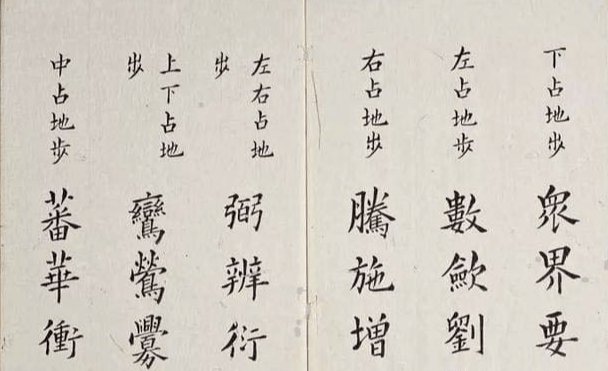 下占地步
眾界要
左占地步
數歛劉
右占地步
騰施增
左右占地
步
弼辨衍
上下占地
步
鸞鶯釁
中占地步
蕃華衝